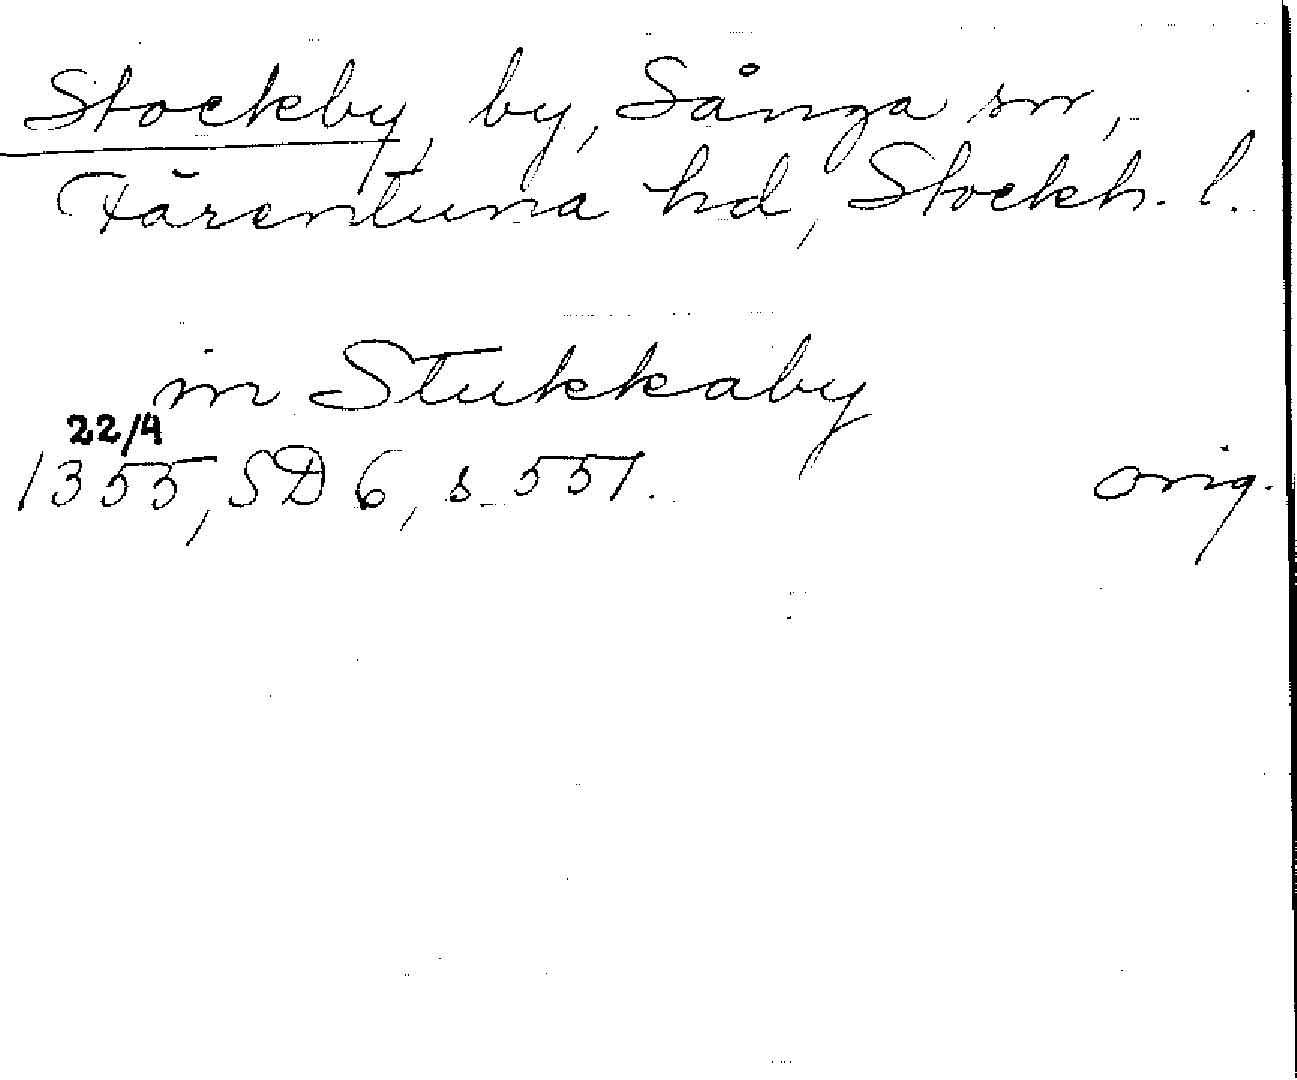 Stockby, by, Sånga sn,
Färentuna hd, Stockh. l.
in Stukkaby
22/4
1355, SD 6, s 551. orig.